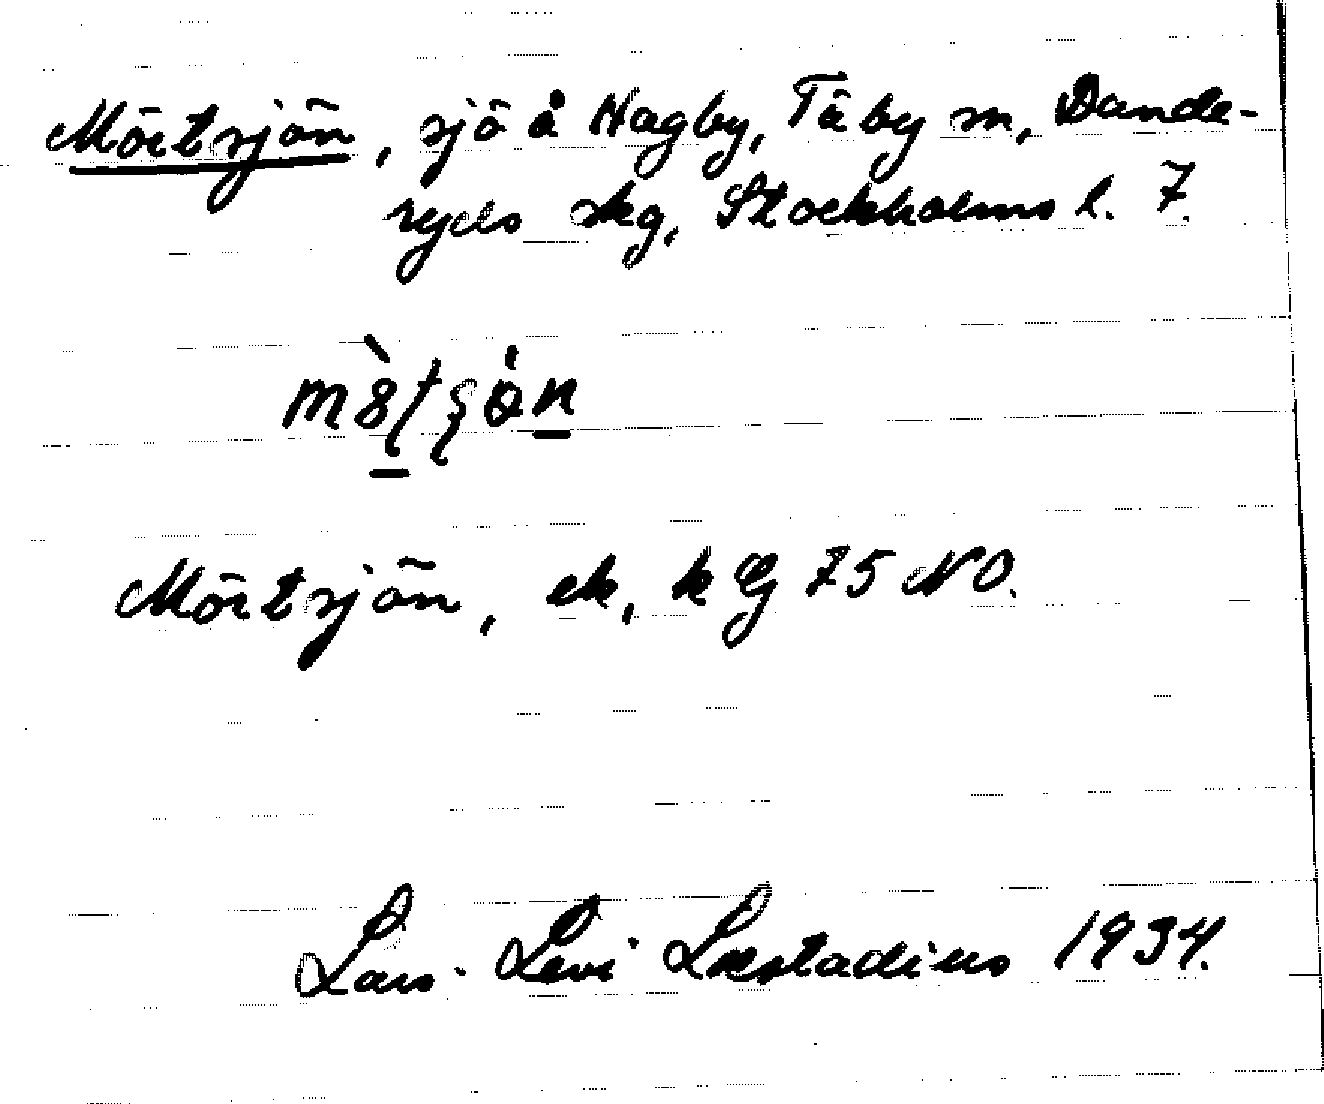 Mörtsjön, sjö å Hagby, Täby sn, Dande-
ryds skg, Stockholms l. 7.
Mörtsjön, ek, k Æ 75 NO.
Lars-Levi Læstadius 1934.